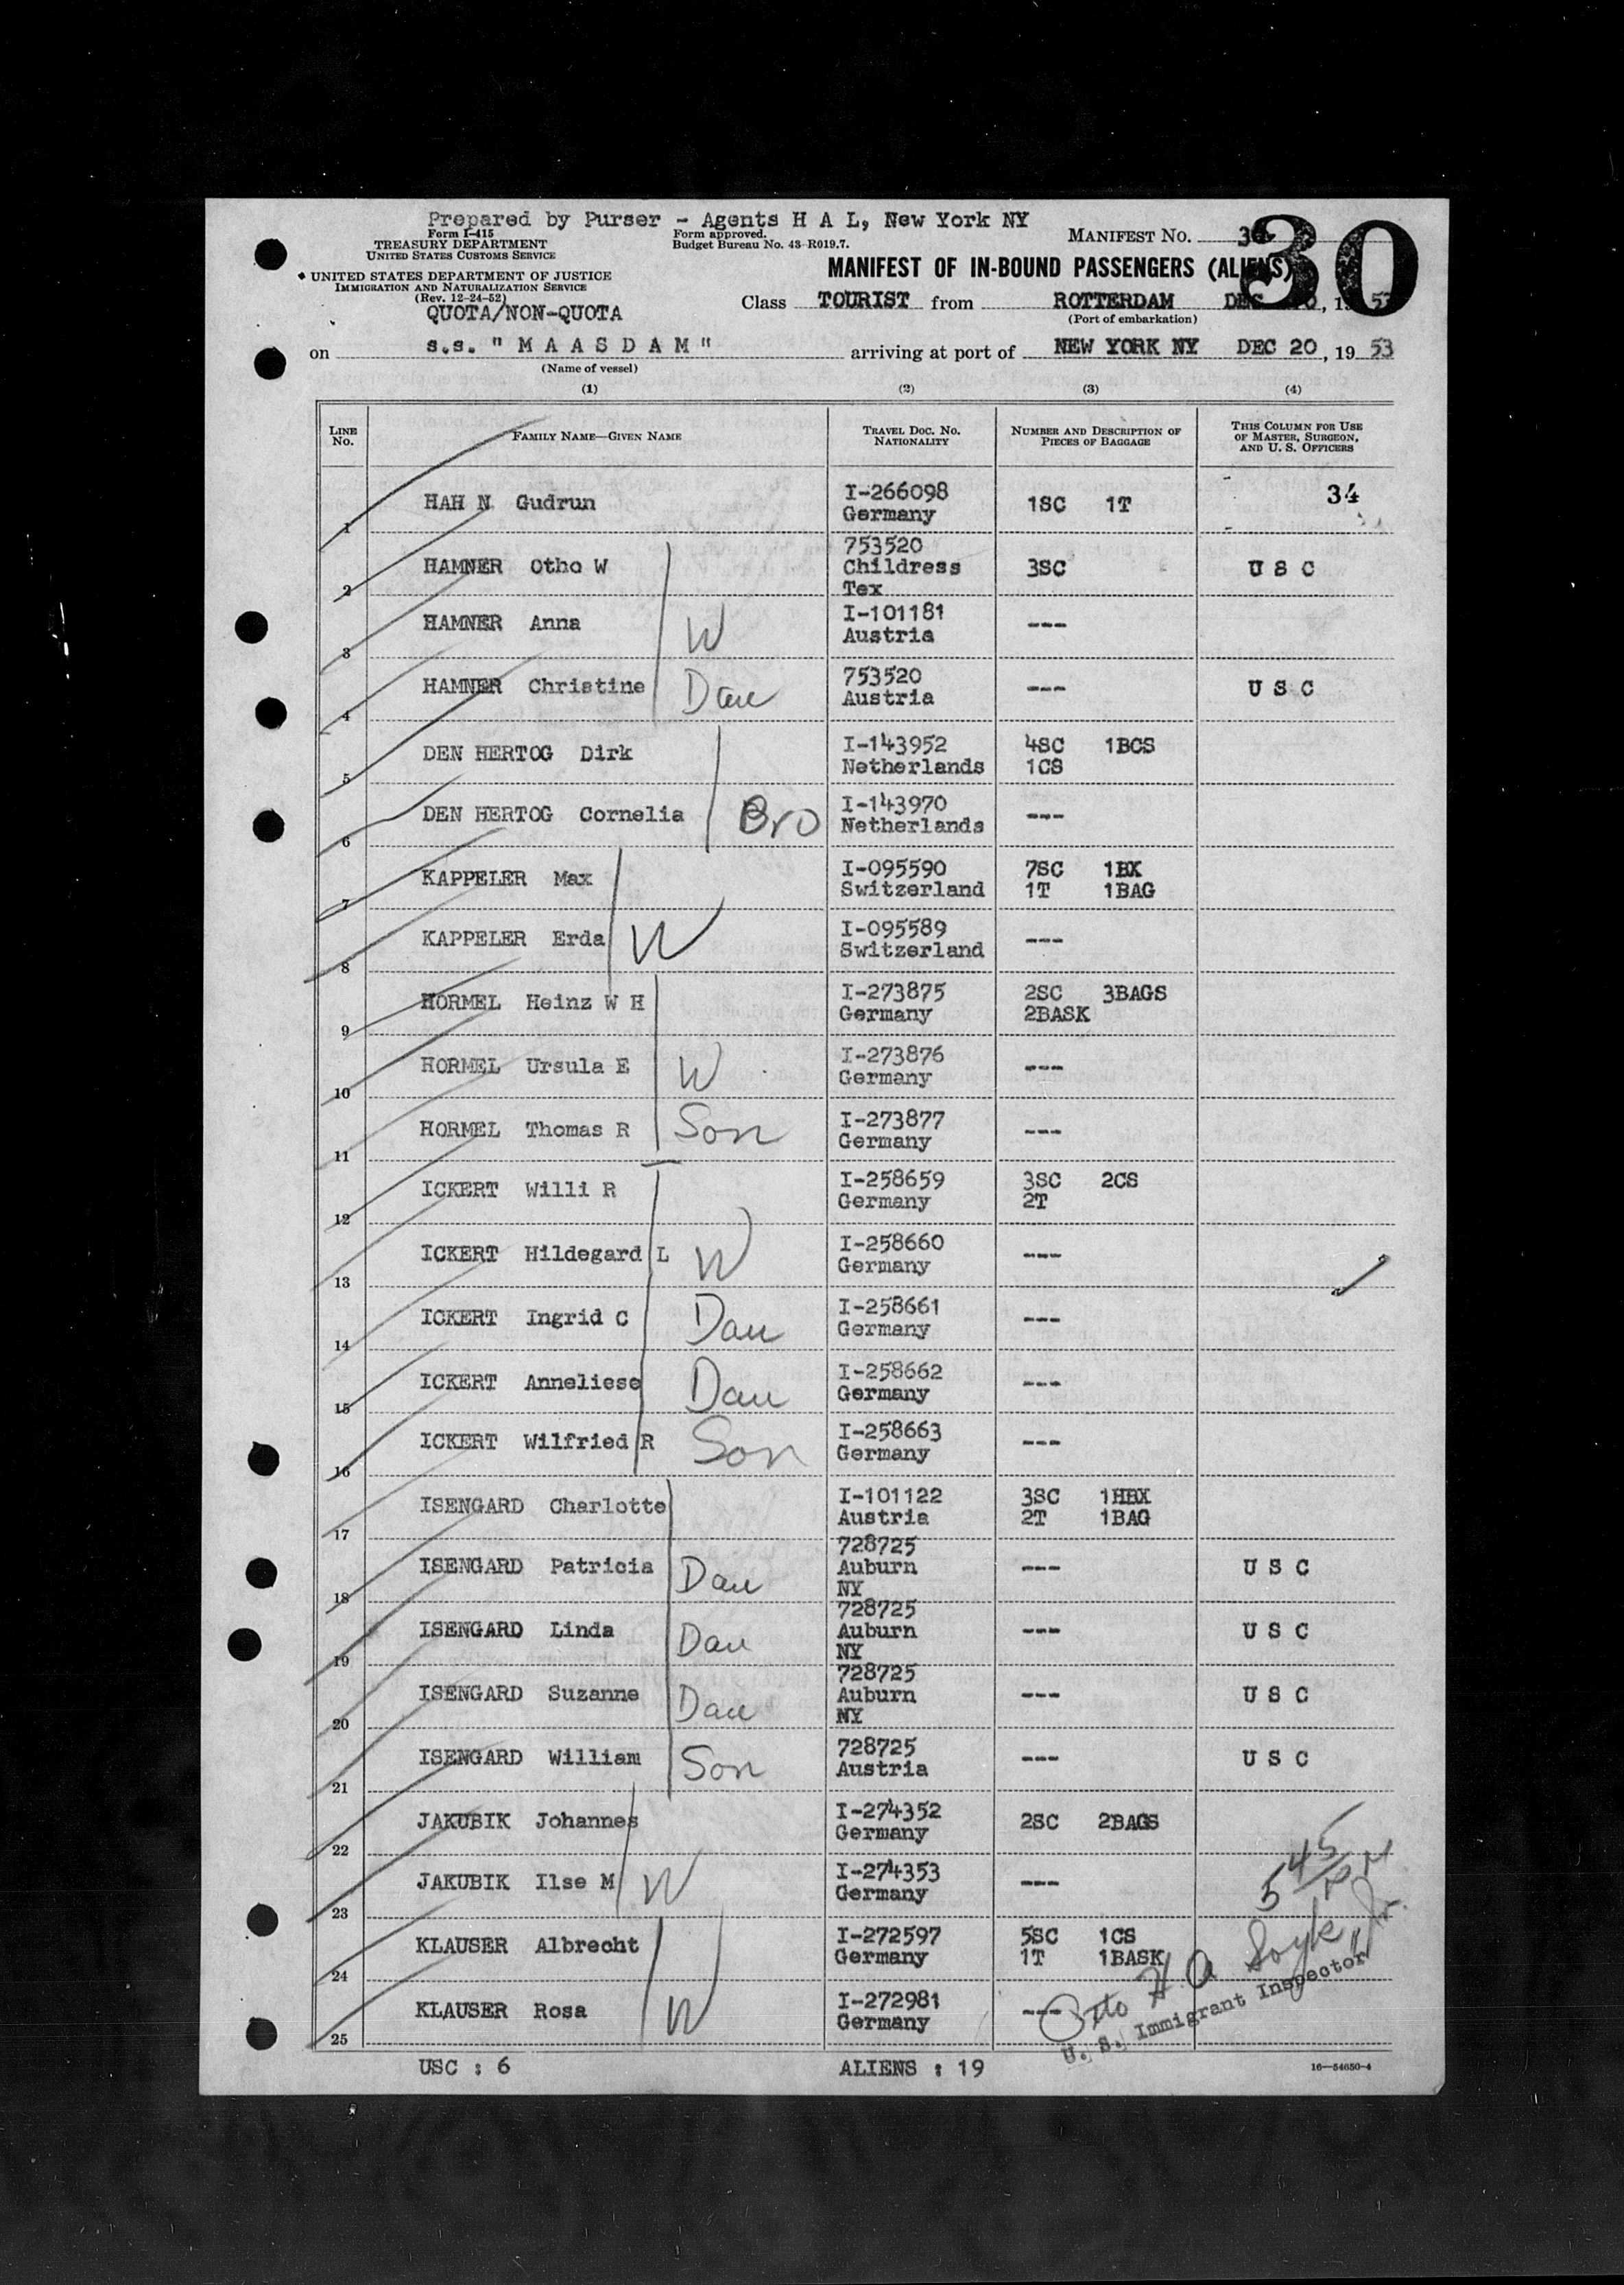 Prepared by Purser - Agents H A L, New York NY
Form I-415
TREASURY DEPARTMENT
UNITED STATES CUSTOMS SERVICE
Form approved.
Budget Bureau No. 43-R019.7.
MANIFEST NO. 30
30
UNITED STATES DEPARTMENT OF JUSTICE
IMMIGRATION AND NATURALIZATION SERVICE
(Rev. 12-24-52)
QUOTA/NON-QUOTA
MANIFEST OF IN-BOUND PASSENGERS (ALIENS)
Class TOURIST from ROTTERDAM DEC , 19 53
(Port of embarkation)
on s.s. " M A A S D A M " arriving at port of NEW YORK NY DEC 20, 19 53
(Name of vessel)
(1) (2) (3) (4)
LINE NO. FAMILY NAME—GIVEN NAME TRAVEL DOC. NO. NATIONALITY NUMBER AND DESCRIPTION OF PIECES OF BAGGAGE THIS COLUMN FOR USE OF MASTER, SURGEON, AND U. S. OFFICERS
1 HAH N Gudrun I-266098 Germany 1SC 1T 34
2 HAMNER Otho W 753520 Childress Tex 3SC U S C
3 HAMNER Anna W I-101181 Austria ---
4 HAMNER Christine Dau 753520 Austria --- U S C
5 DEN HERTOG Dirk I-143952 Netherlands 4SC 1BCS 1CS
6 DEN HERTOG Cornelia Bro I-143970 Netherlands ---
7 KAPPELER Max I-095590 Switzerland 7SC 1BX 1T 1BAG
8 KAPPELER Erda W I-095589 Switzerland ---
9 HORMEL Heinz W H I-273875 Germany 2SC 3BAGS 2BASK
10 HORMEL Ursula E W I-273876 Germany ---
11 HORMEL Thomas R Son I-273877 Germany ---
12 ICKERT Willi R I-258659 Germany 3SC 2CS 2T
13 ICKERT Hildegard L W I-258660 Germany ---
14 ICKERT Ingrid C Dau I-258661 Germany ---
15 ICKERT Anneliese Dau I-258662 Germany ---
16 ICKERT Wilfried R Son I-258663 Germany ---
17 ISENGARD Charlotte I-101122 Austria 3SC 1HBX 2T 1BAG
18 ISENGARD Patricia Dau 728725 Auburn NY --- U S C
19 ISENGARD Linda Dau 728725 Auburn NY --- U S C
20 ISENGARD Suzanne Dau 728725 Auburn NY --- U S C
21 ISENGARD William Son 728725 Austria --- U S C
22 JAKUBIK Johannes I-274352 Germany 2SC 2BAGS
23 JAKUBIK Ilse M W I-274353 Germany ---
24 KLAUSER Albrecht I-272597 Germany 5SC 1CS 1T 1BASK
25 KLAUSER Rosa W I-272981 Germany ---
5 45
Otto H A Soyk, Jr.
U. S. Immigrant Inspector
USC : 6 ALIENS : 19 16—54650-4